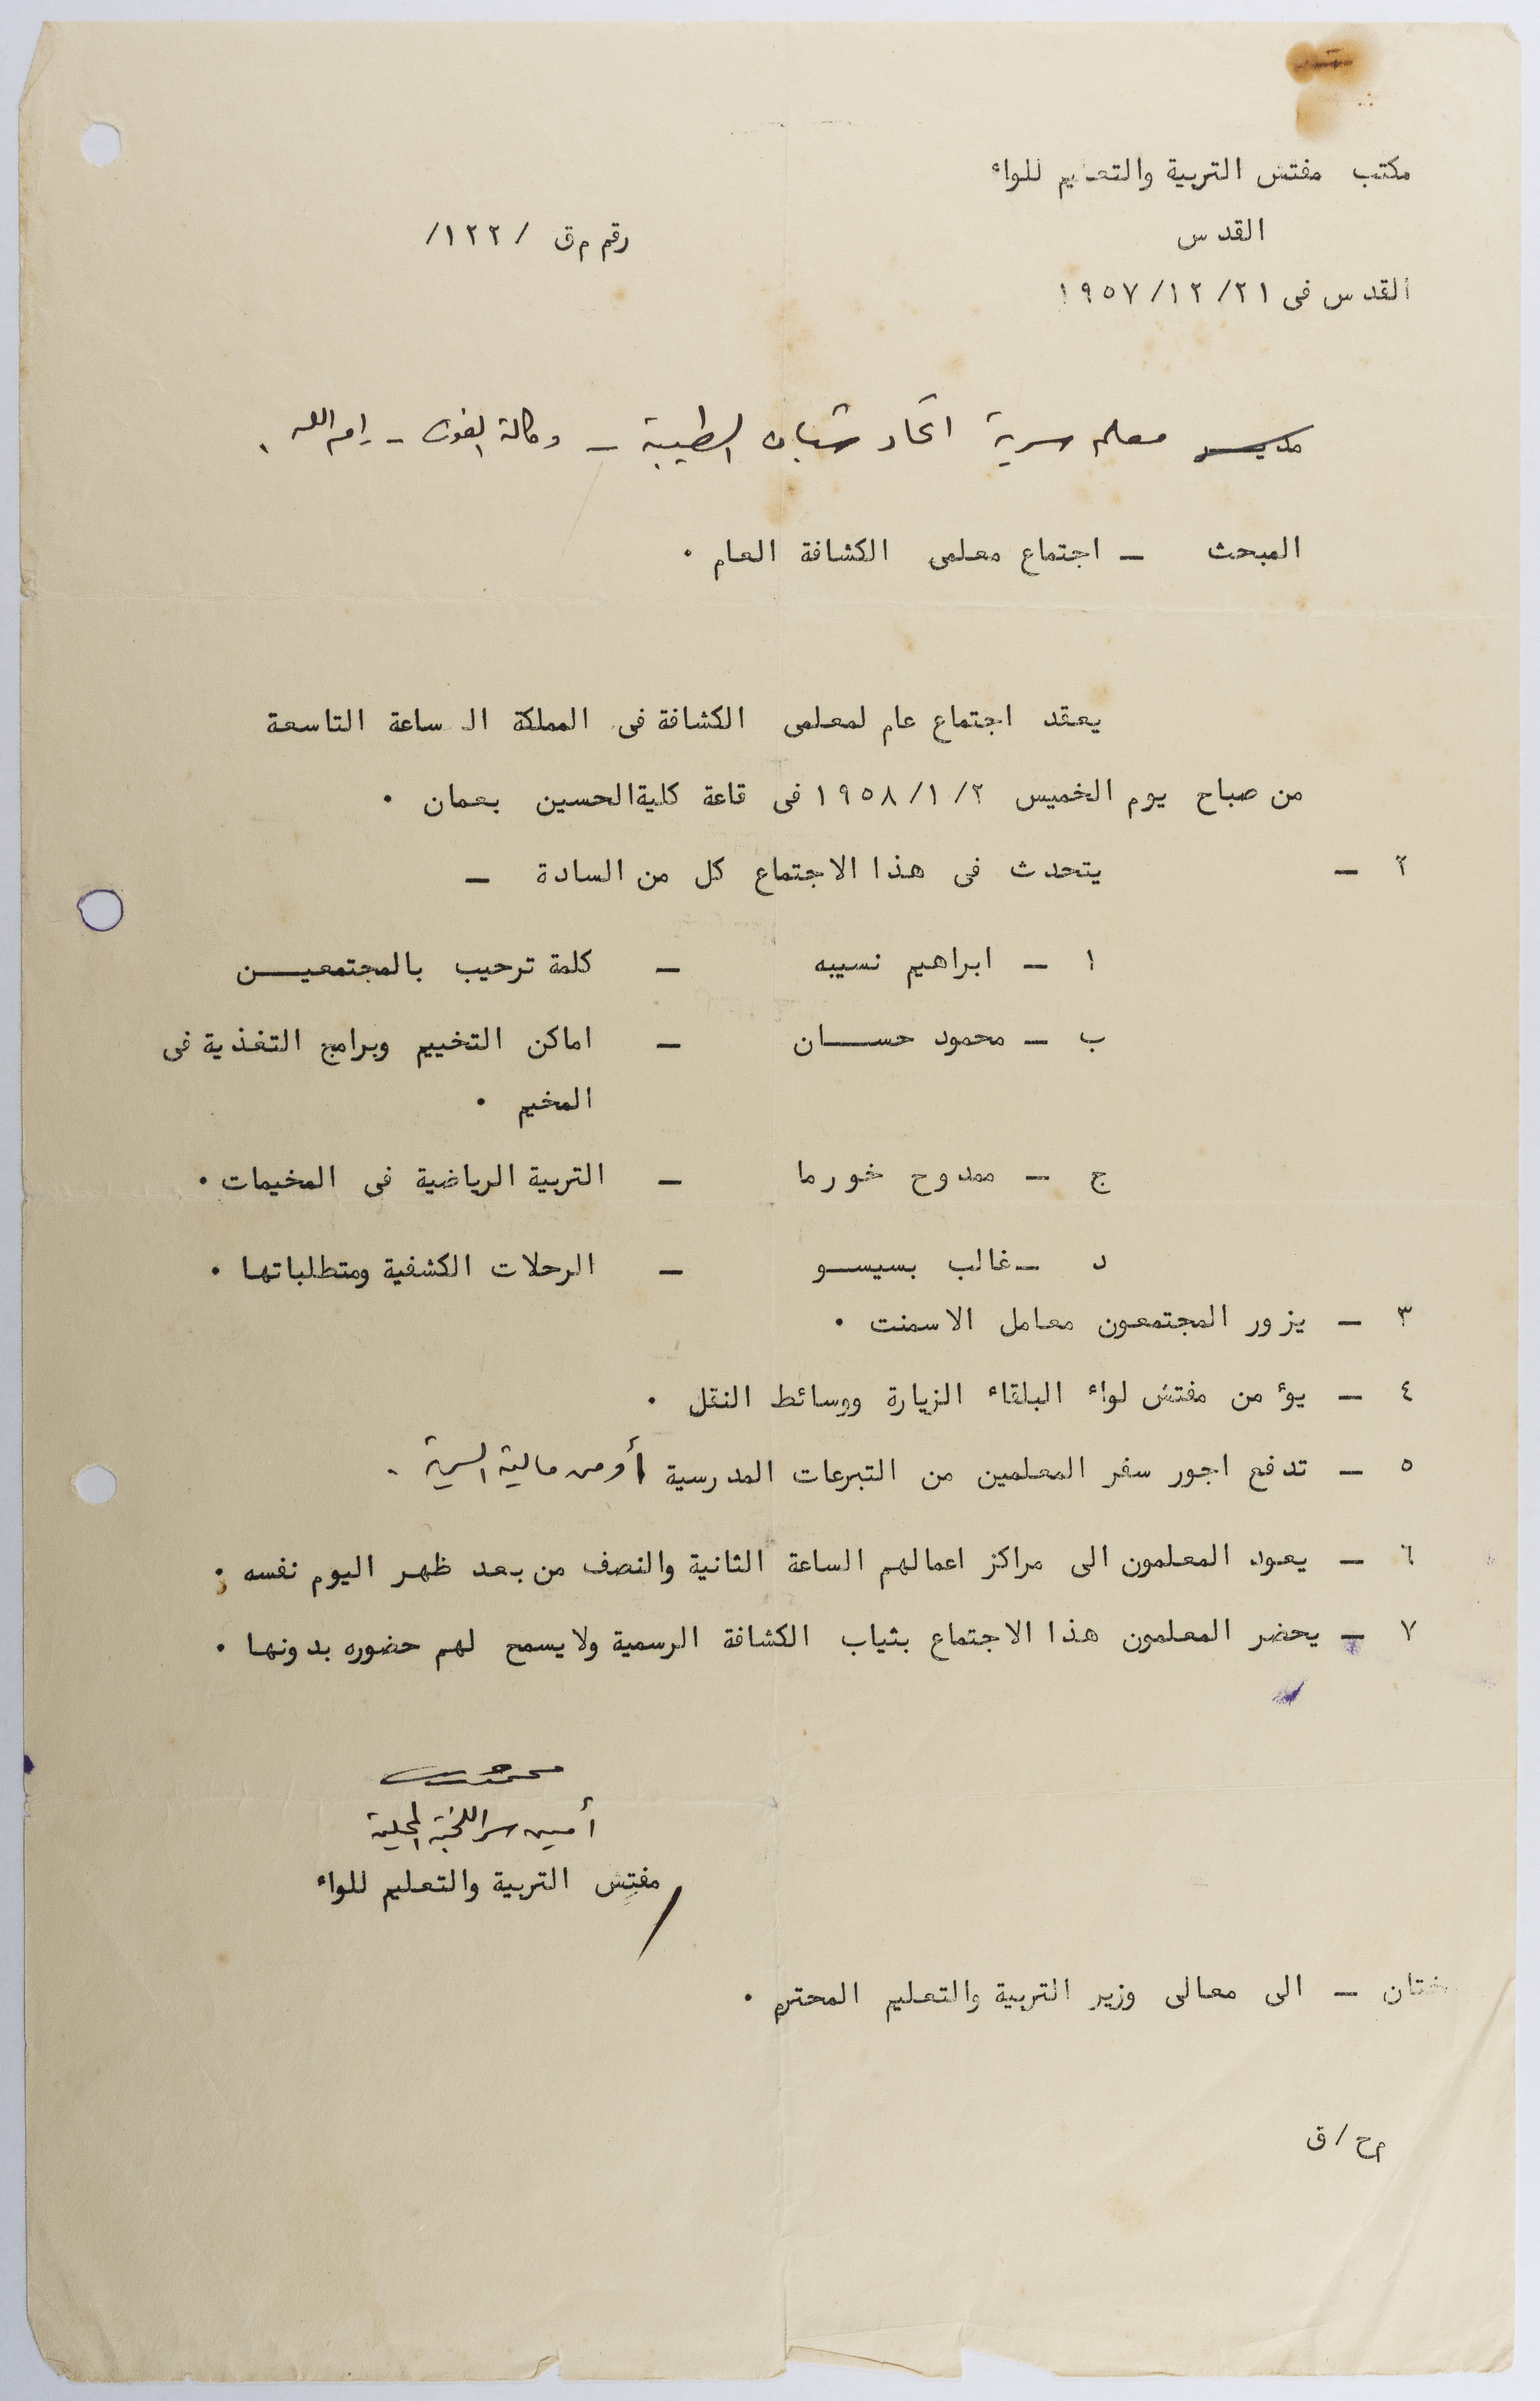 مكتب مفتش التربية والتعليم للواء
القدس
رقم م ق / ١٢٢/
القدس فى ٢١/ ١٢/ ١٩٥٧
مدير معلم سرية اتحاد شباب الطيبة – وكالة الغوث – رام الله .
المبحث – اجتماع معلمى الكشافة العام .
يعقد اجتماع عام لمعلمى الكشافة فى المملكة الساعة التاسعة
من صباح يوم الخميس ٢/ ١/ ١٩٥٨ فى قاعة كلية الحسين بعمان .
٢ – يتحدث فى هذا الاجتماع كل من السادة –
ا – ابراهيم نسيبه – كلمة ترحيب بالمجتمعيـــن
ب – محمود حســـان – اماكن التخييم وبرامج التغذية فى
المخيم .
ج – ممدوح خورما – التربية الرياضية فى المخيمات .
د – غالب بسيسـو – الرحلات الكشفية ومتطلباتها .
٣ – يزور المجتمعون معامل الاسمنت .
٤ – يؤمن مفتش لواء البلقاء الزيارة ووسائط النقل .
٥ – تدفع اجور سفر المعلمين من التبرعات المدرسية أو من مالية السرية .
٦ – يعود المعلمون الى مراكز اعمالهم الساعة الثانية والنصف من بعد ظهر اليوم نفسه .
٧ – يحضر المعلمون هذا الاجتماع بثياب الكشافة الرسمية ولا يسمح لهم حضوره بدونها .
أمين سر اللجنة المحلية
مفتش التربية والتعليم للواء
ختان – الى معالى وزير التربية والتعليم المحترم .
م ح / ق